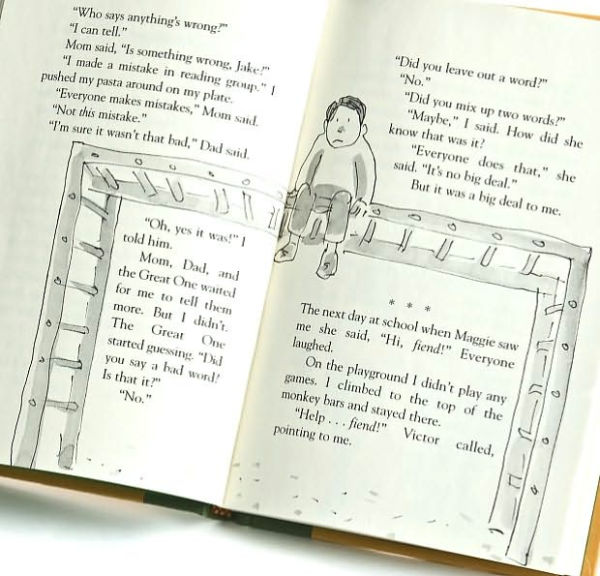 “Who says anything’s wrong?”
“I can tell.”
Mom said, “Is something wrong, Jake?”
“I made a mistake in reading group.” I
pushed my pasta around on my plate.
“Everyone makes mistakes,” Mom said.
“Not this mistake.”
“I’m sure it wasn’t that bad,” Dad said.
“Oh, yes it was!” I
told him.
Mom, Dad, and
the Great One waited
for me to tell them
more. But I didn’t.
The Great One
started guessing. “Did
you say a bad word?
Is that it?”
“No.”
“Did you leave out a word?”
“No.”
“Did you mix up two words?”
“Maybe,” I said. How did she
know that was it?
“Everyone does that,” she
said. “It’s no big deal.”
But it was a big deal to me.
* * *
The next day at school when Maggie saw
me she said, “Hi, fiend!” Everyone
laughed.
On the playground I didn’t play any
games. I climbed to the top of the
monkey bars and stayed there.
“Help . . . fiend!” Victor called,
pointing to me.